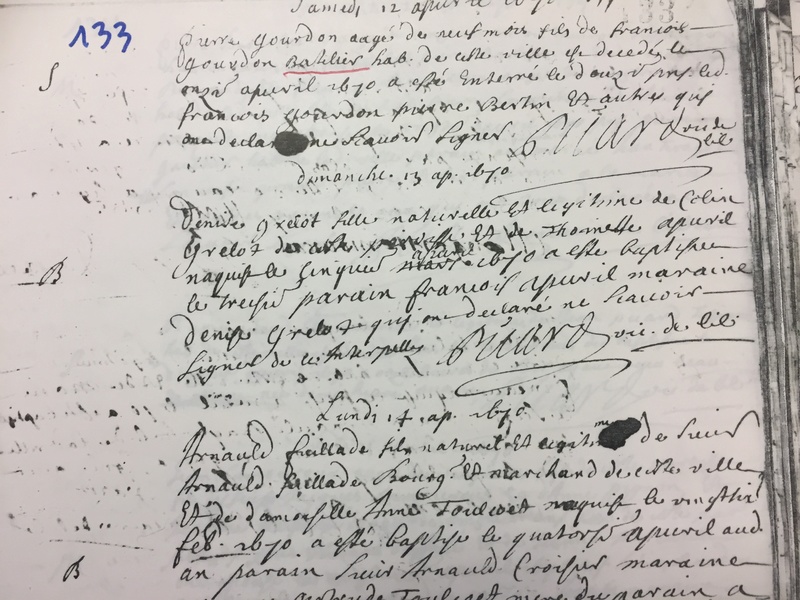 Samedi 12 apvril 1670
133
pierre gourdon aagé de neuf mois fils de francois
S
gourdon Batilier hab. de ceste ville est decedé le
apvril 1670 a esté Enterré le pns. led.
francois gourdon pierre Bertin Et autres quj
ont declaré ne scauoir signer vic. de
lisle
dimanche 13 ap. 1670
Denise Grelot fille naturelle Et legitime de Colin
Grelot de ceste parroisse Et de Thoinette apvril
B
naquit le cinquie apvril 1670 a esté baptisée
le treisie parain francois apvril maraine
Denise Grelot quj ont declaré ne scauoir
signer de ce Interpellés vic. de lisle
Lundi 14 ap. 1670
Arnauld fuillade fils naturel Et legitime de sieur
Arnauld fuillade Bourg. Et marchand de ceste ville
Et de damoiselle Anne naquit le vingtsix
feb. 1670 a esté baptisé le quatorsie apvril aud.
B
an parain sieur Arnauld Croisier maraine
mere du parain a